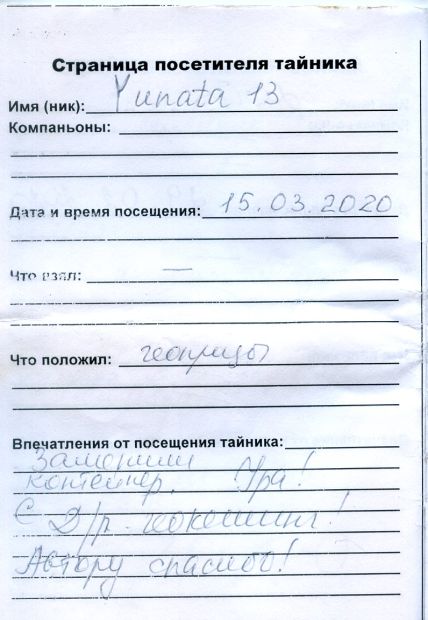 Страница посетителя тайника
Имя (ник): Yunata 13
Компаньоны:
Дата и время посещения: 15.03.2020
Что взял: —
Что положил: геопризы
Впечатления от посещения тайника:
Заменили
контейнер. Ура!
С Д/р геокешинг!
Автору спасибо!